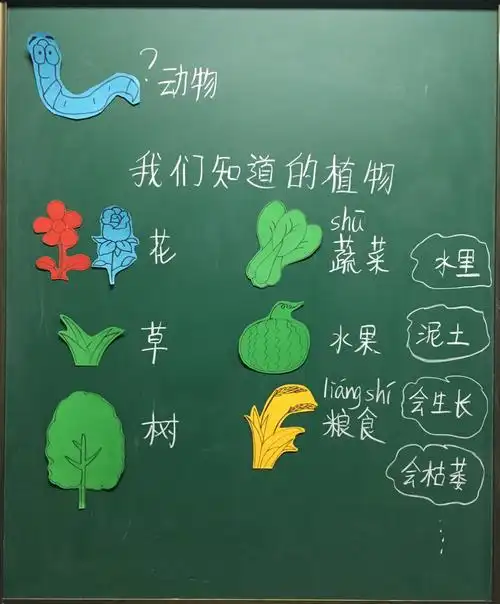 ?动物
我们知道的植物
花
shū
蔬菜
水里
草
水果
泥土
树
liáng shí
粮食
会生长
会枯萎
⋮